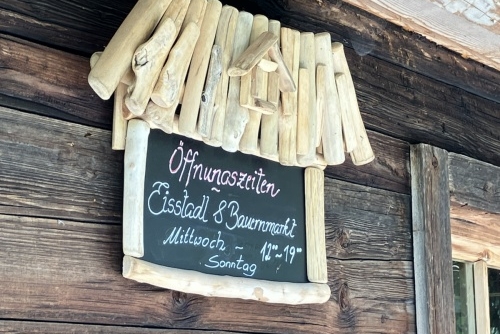 Öffnungszeiten
~
Eisstadl & Bauernmarkt
Mittwoch ~ 12⁰⁰-19⁰⁰
Sonntag